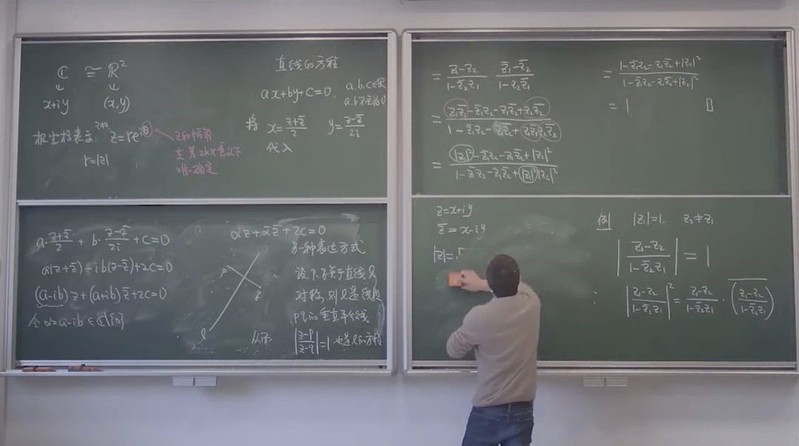 ℂ ≅ ℝ²
x+iy (x,y)
极坐标表示: z=re^{iθ}
r=|z|
z的幅角
在差2kπ意义下
唯一确定
直线的方程
ax+by+c=0,
a.b.c∈ℝ
将 x=\frac{z+\bar{z}}{2} y=\frac{z-\bar{z}}{2i}
代入
a·\frac{z+\bar{z}}{2} + b·\frac{z-\bar{z}}{2i} +c=0
a(z+\bar{z})-ib(z-\bar{z})+2c=0
(a-ib)z+(a+ib)\bar{z}+2c=0
令 α=a-ib ∈ℂ\{0}
αz+\bar{α}\bar{z}+2c=0
另一种表达方式
设P.q关于直线l
对称,则l是线段
Pq的垂直平分线
从而 |\frac{z-p}{z-q}|=1 也是l的方程
l
= \frac{z_1-z_2}{1-\bar{z}_2z_1} \frac{\bar{z}_1-\bar{z}_2}{1-z_2\bar{z}_1}
= \frac{z_1\bar{z}_1-\bar{z}_1z_2-z_1\bar{z}_2+z_2\bar{z}_2}{1-\bar{z}_1z_2-z_1\bar{z}_2+z_1\bar{z}_1z_2\bar{z}_2}
= \frac{|z_1|^2-\bar{z}_1z_2-z_1\bar{z}_2+|z_2|^2}{1-\bar{z}_1z_2-z_1\bar{z}_2+|z_1|^2|z_2|^2}
= \frac{1-\bar{z}_1z_2-z_1\bar{z}_2+|z_2|^2}{1-\bar{z}_1z_2-z_1\bar{z}_2+|z_2|^2}
= 1 □
z=x+iy
\bar{z}=x-iy
|z|=√
例 |z_1|=1. z_2≠z_1
|\frac{z_1-z_2}{1-\bar{z}_2z_1}| = 1
: |\frac{z_1-z_2}{1-\bar{z}_2z_1}|^2 = \frac{z_1-z_2}{1-\bar{z}_2z_1} · \overline{(\frac{z_1-z_2}{1-\bar{z}_2z_1})}